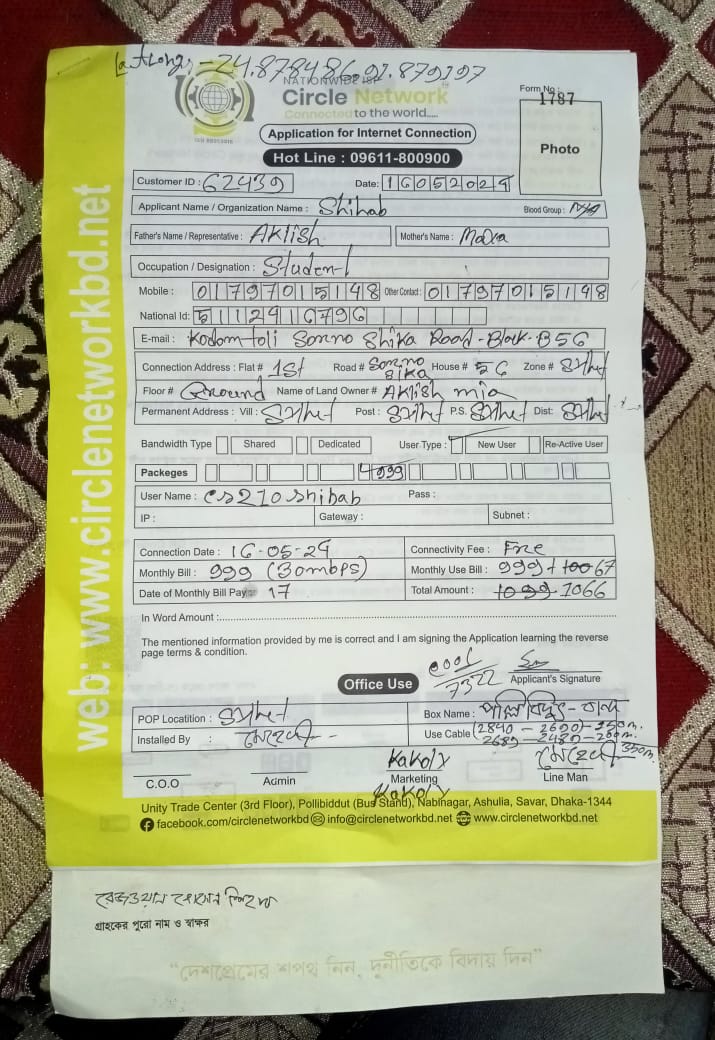 LatLong:- 24.878486, 91.879197
NATIONWIDE ISP
Circle Network
Connected to the world.....
Application for Internet Connection
Hot Line : 09611-800900
Form No :
1787
Photo
Customer ID : 62439 Date: 16052024
Applicant Name / Organization Name : Shihab Blood Group : N/A
Father's Name / Representative : Aklish Mother's Name :
Occupation / Designation : Student
Mobile : 01797015148 Other Contact : 01797015148
National Id:
E-mail : Kodomtoli Sorno Shika Road - Block-B 56
Connection Address : Flat # 1st Road # Sorno Sika House # 56 Zone # Sylhet
Floor # Ground Name of Land Owner # Aklish mia
Permanent Address : Vill : Sylhet Post : Sylhet P.S. Sylhet Dist: Sylhet
Bandwidth Type Shared Dedicated User Type : New User Re-Active User
Packeges
User Name : cs210shihab Pass :
IP : Gateway : Subnet :
Connection Date : 16-05-24 Connectivity Fee : Free
Monthly Bill : 999 (30mbps) Monthly Use Bill : 999 + 100 67
Date of Monthly Bill Pay: 17 Total Amount : 1099 1066
In Word Amount :
The mentioned information provided by me is correct and I am signing the Application learning the reverse
page terms & condition.
7322
Applicant's Signature
Office Use
POP Locatition : Sylhet Box Name : পল্লি বিদ্যুৎ-
Installed By : মেহেদী Use Cable (2840 - 2690) - 150m.
2689 - 2489 - 200m.
350m.
Kakoly মেহেদী
C.O.O Admin Marketing Line Man
Kakoly
Unity Trade Center (3rd Floor), Pollibiddut (Bus Stand), Nabinagar, Ashulia, Savar, Dhaka-1344
facebook.com/circlenetworkbd info@circlenetworkbd.net www.circlenetworkbd.net
web: www.circlenetworkbd.net
রেজওয়ান হোসেন শিহাব
গ্রাহকের পুরো নাম ও স্বাক্ষর
"দেশপ্রেমের শপথ নিন, দুর্নীতিকে বিদায় দিন"